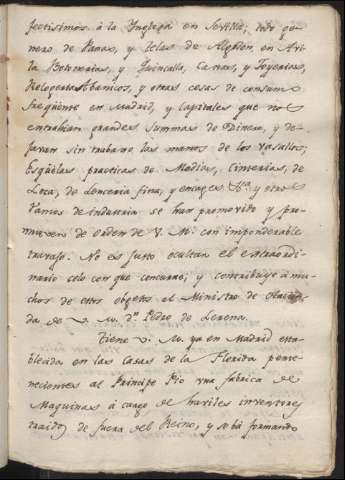 fectisimas à la Ynglesa en Sevilla; todo gé-
nero de Panas, y telas de Algodon, en Avi-
la Botonerias, y Quincalla, Carton, y Joyerias,
Reloxeria Abanicos, y otras cosas de consumo
frequente en Madrid, y Capitales que no
entrahian grandes Summas de Dinero, y de-
javan sin trabajo las manos de los vasallos;
Esqüelas practicas de Medias, Cinterias, de
Loza, de Lenceria fina, y encages &ca. y otros
Ramos de industria se han promovido y pro-
mueven de orden de V. M. con imponderable
travajo. No es justo ocultar el extraordi-
nario celo con que concurre, y contribuye à mu-
chos de estos objetos el Ministro de Hacien-
da de V. M. dn. Pedro de Lerena.
Tiene V. M. ya en Madrid esta-
blecida en las Casas de la Florida perte-
necientes al Principe Pio una fabrica de
Maquinas à cargo de haviles inventores
traidos de fuera del Reino, y se bá formando